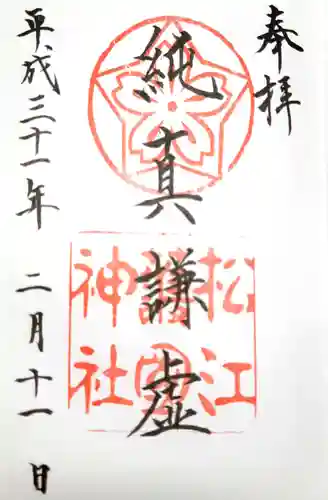 奉拝
純真謙虚
松江
護國
神社
平成三十一年 二月十一日